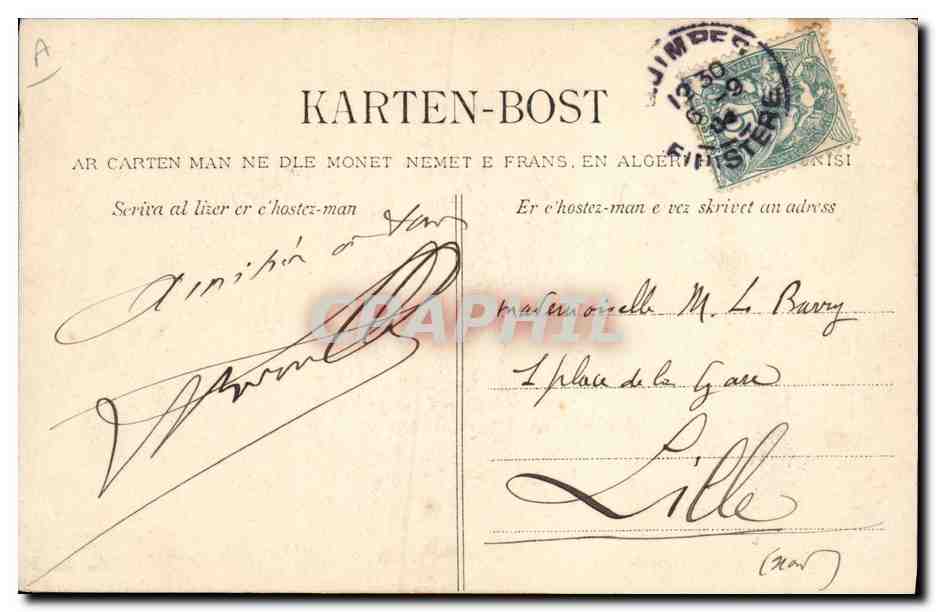 A
QUIMPER
12 30
FINISTERE
KARTEN-BOST
AR CARTEN MAN NE DLE MONET NEMET E FRANS, EN ALGERI
Scriva al lizer er c'hostez-man
Er c'hostez-man e vez skrivet an adress
Amitiés à tous
CPARAPHIL
mademoiselle M. Le Barry
1 place de la Gare
Lille
(Nord)